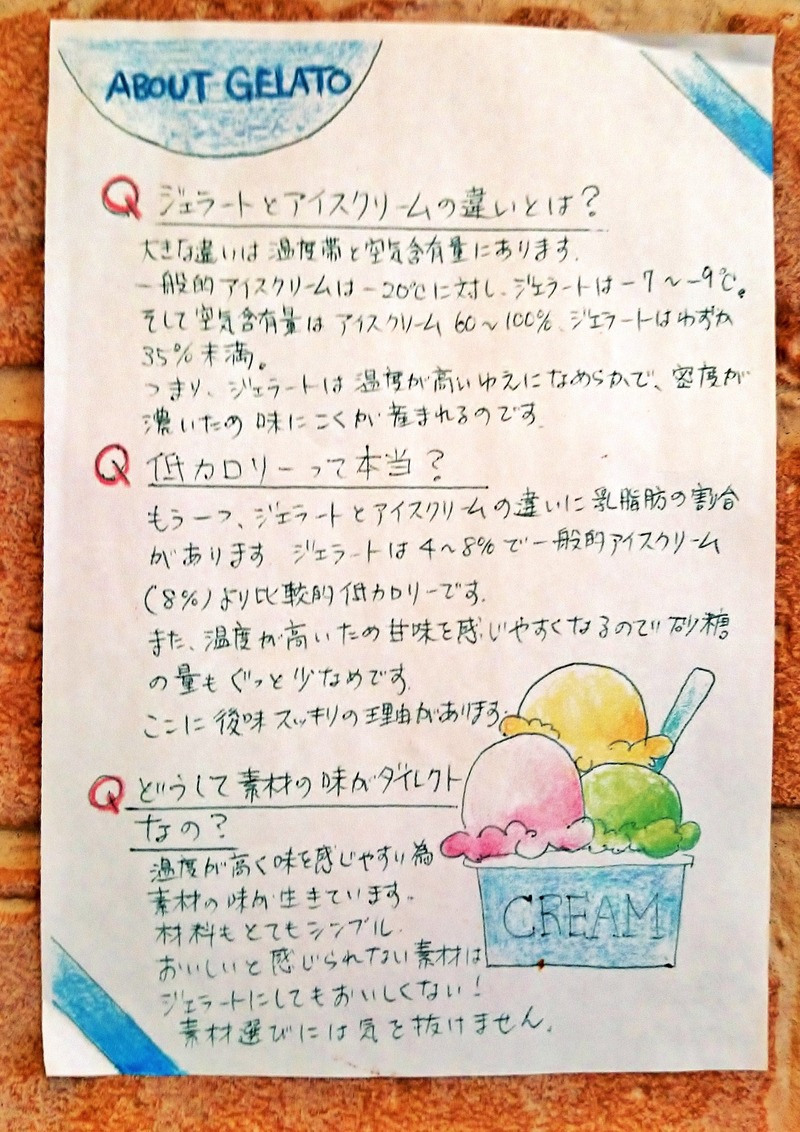 ABOUT GELATO
Q ジェラートとアイスクリームの違いとは?
大きな違いは温度帯と空気含有量にあります。
一般的アイスクリームは-20℃に対し、ジェラートは-7~-9℃。
そして空気含有量はアイスクリーム60~100%、ジェラートはわずか
35%未満。
つまり、ジェラートは温度が高いゆえになめらかで、密度が
濃いため味にこくが産まれるのです。
Q 低カロリーって本当?
もう一つ、ジェラートとアイスクリームの違いに乳脂肪の割合
があります ジェラートは4~8%で一般的アイスクリーム
(8%)より比較的低カロリーです。
また、温度が高いため甘味を感じやすくなるので砂糖
の量もぐっと少なめです。
ここに後味スッキリの理由があります。
Q どうして素材の味がダイレクト
なの?
温度が高く味を感じやすい為
素材の味が生きています。
材料もとてもシンプル.
おいしいと感じられない素材は
ジェラートにしてもおいしくない!
素材選びには気を抜けません。
CREAM